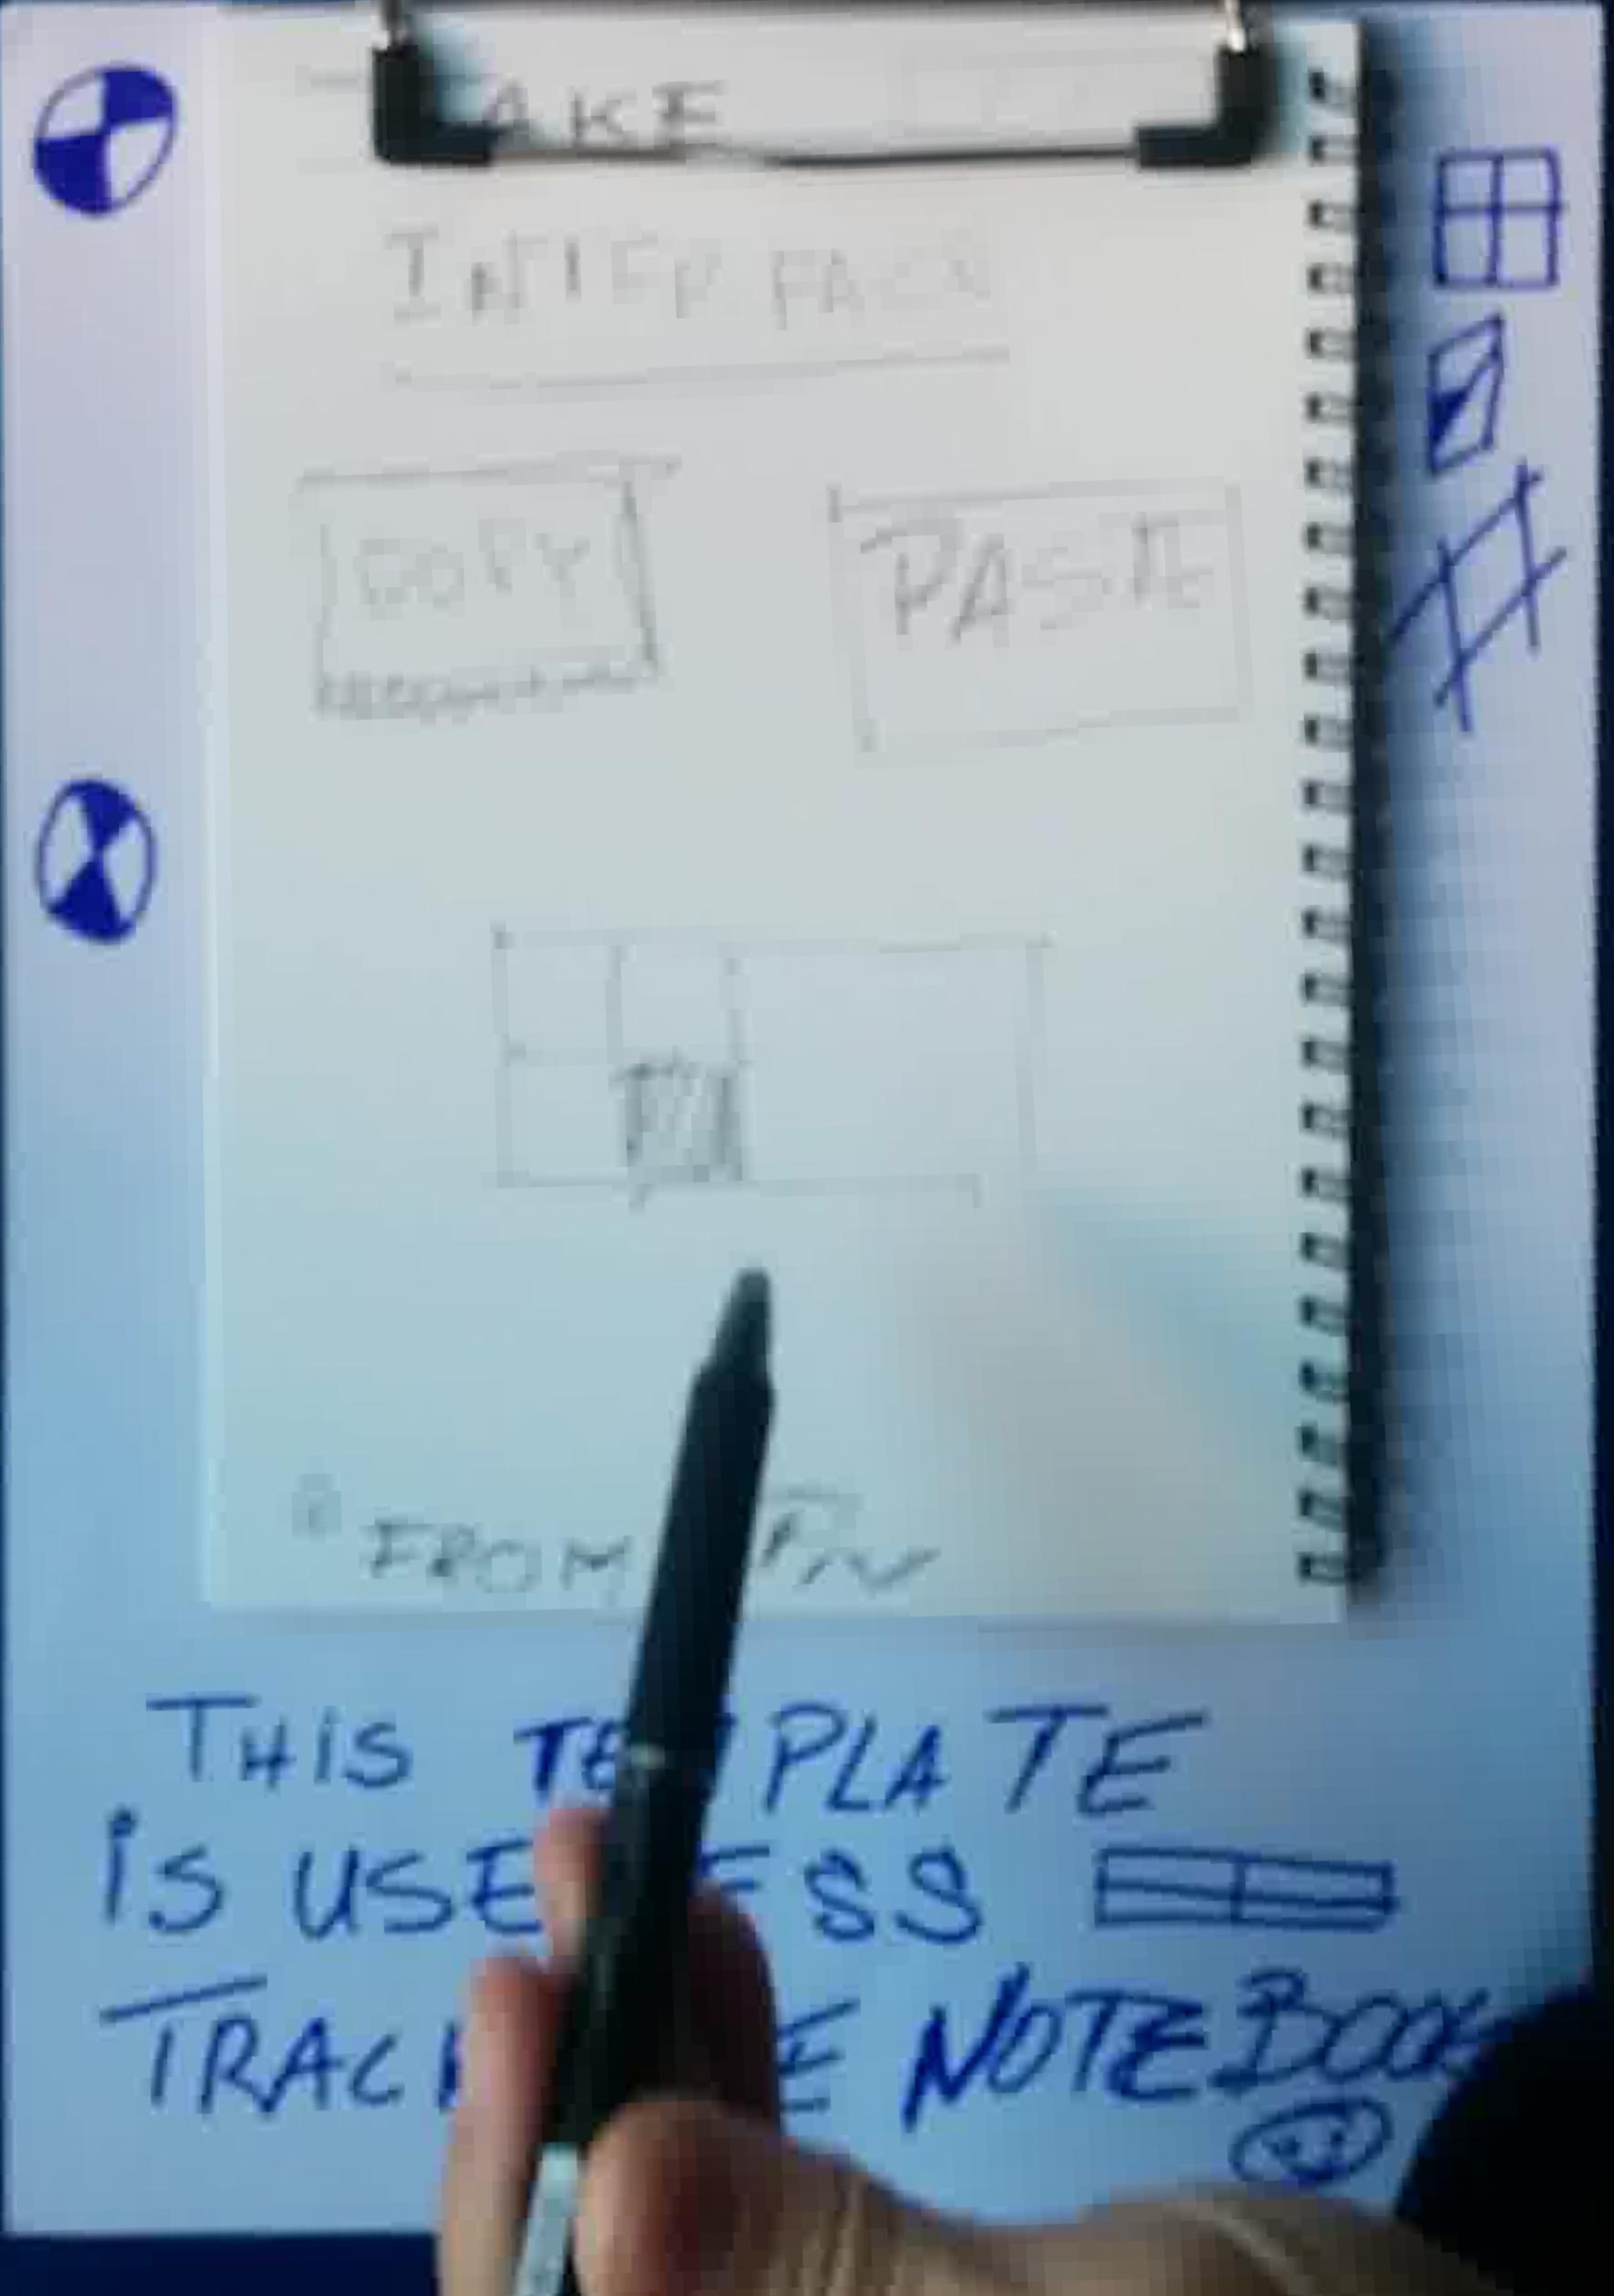 AKE
INTERFACE
COPY PASTE
FROM
THIS TEMPLATE
is USELESS
TRACK NOTEBOOK